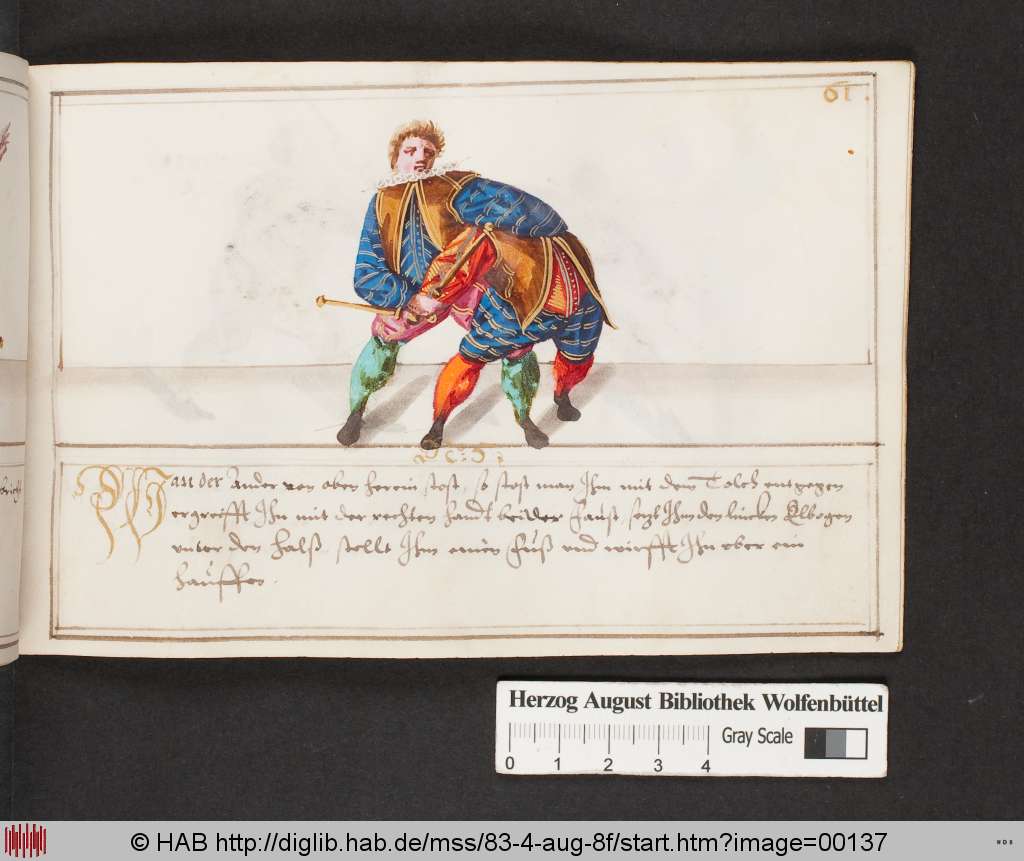 61.
Wan der Ander von oben herein stost, so stost man Ihm mit dem Tolch entgegen
ergreifft Ihn mit der rechten handt bei der Faust, sezt Ihm den lincken Elbogen
unter den halß, stellt Ihm einen Fuß vnd wirfft Ihn vber ein
hauffen.
Herzog August Bibliothek Wolfenbüttel
Gray Scale
0 1 2 3 4
© HAB http://diglib.hab.de/mss/83-4-aug-8f/start.htm?image=00137